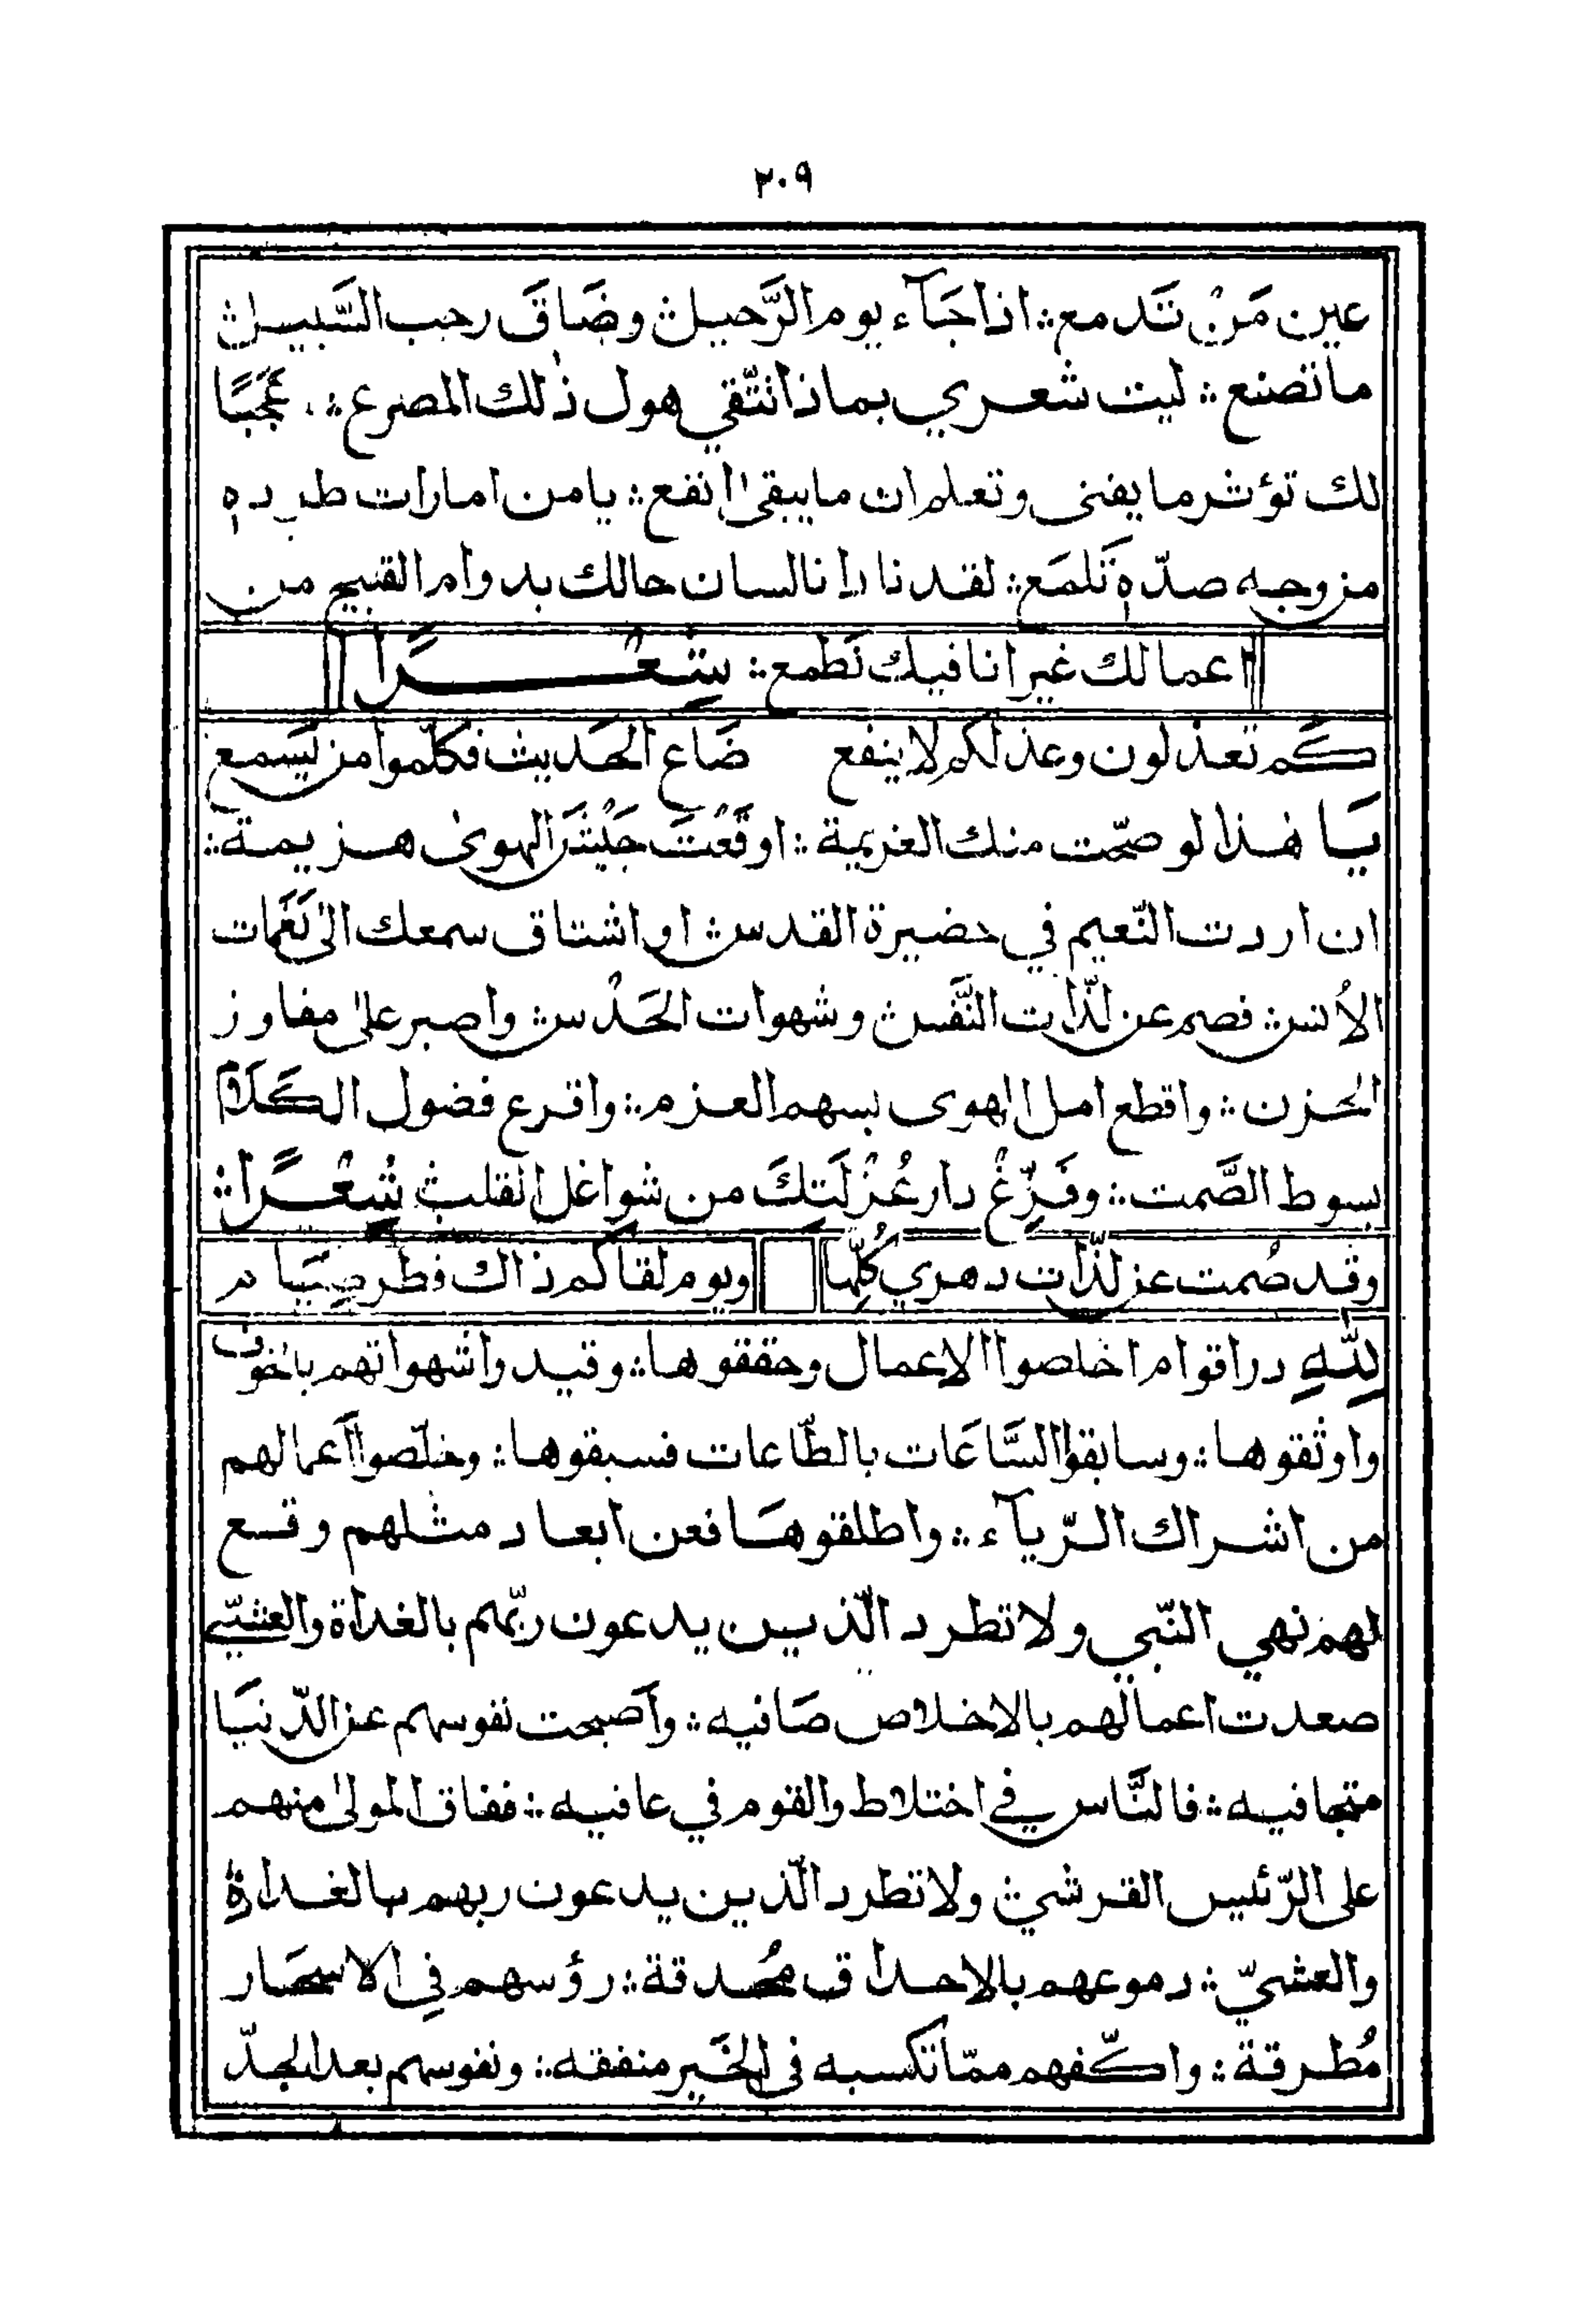 ٣٠٩
عين مَنْ تَدمع ؞ اذا جَآء يوم الرَّحيل ؞ وضَاقَ رحب السَّبيل ؞
ما تصنع ؞ ليت شعري بماذا تتّقي هول ذٰلك المصرع ؞ عَجَبًا
لك تؤثر ما يفنى وتعلم ان ما يبقىٰ انفع ؞ يا من امارات طرده
من وجه صدّه تَلمَع ؞ لقد نادانا لسان حالك بدوام القبيح من
اعمالك غير انا فيك نَطمع ؞ شِعْرًا
كَم تعذلون وعذلكم لا ينفع ضَاع الحَديث فكلّموا من يَسمع
يَا هٰذا لو صحّت منك العزيمة ؞ اوقَعْتَ جَيْشَ الهوىٰ هزيمة ؞
ان اردت النّعيم في حضيرة القدس ؞ او اشتاق سمعك الىٰ نَغَمات
الأنس ؞ فصم عن لذّات النَّفس ؞ وشهوات الحَدْس ؞ واصبر علىٰ مفاوز
الحزن ؞ واقطع امل الهوى بسهم العزم ؞ واقرع فضول الكَلَام
بسوط الصَّمت ؞ وفَرِّغْ دار عُزْلَتِكَ من شواغل القلب ؞ شِعْرًا ؞
وقد صُمت عن لذّات دهري كُلِّها ويوم لقاكم ذاك فطر صِيَام
لِلّٰهِ در اقوام اخلصوا الاعمال وحققوها ؞ وقيدوا شهواتهم بالخوف
واوثقوها ؞ وسابقوا السَّاعَات بالطّاعات فسبقوها ؞ وخلّصوا أعمالهم
من اشراك الرّيآء ؞ واطلقوهَا فعن ابعاد مثلهم وقع
لهم نهي النّبي ولا تطرد الّذين يدعون ربّهم بالغداة والعشيّ
صعدت اعمالهم بالاخلاص صَافيه ؞ وأصبحت نفوسهم عن الدّنيَا
متجافيه ؞ فالنَّاس في اختلاط والقوم في عافيه ؞ ففاق المولىٰ منهم
على الرّئيس القرشي ؞ ولا تطرد الّذين يدعون ربهم بالغداة
والعشيّ ؞ دموعهم بالاحداق مُحدقة ؞ رؤسهم في الاسحَار
مُطرقة ؞ واكّفهم ممّا تكسبه في الخَير منفقه ؞ ونفوسهم بعد الجدّ